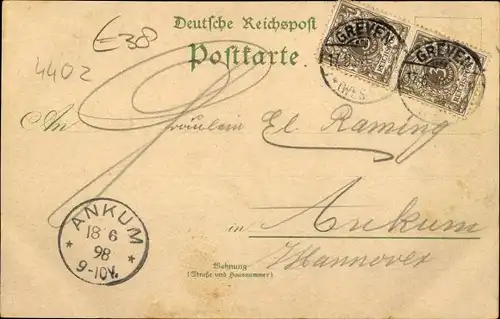 Deutsche Reichspost
Postkarte
E38
4402
GREVEN
GREVEN
17
3
An Fräulein El Raming
in Ankum
Hannover
ANKUM
18 6
98
9-10V.
Wohnung
(Straße und Hausnummer)